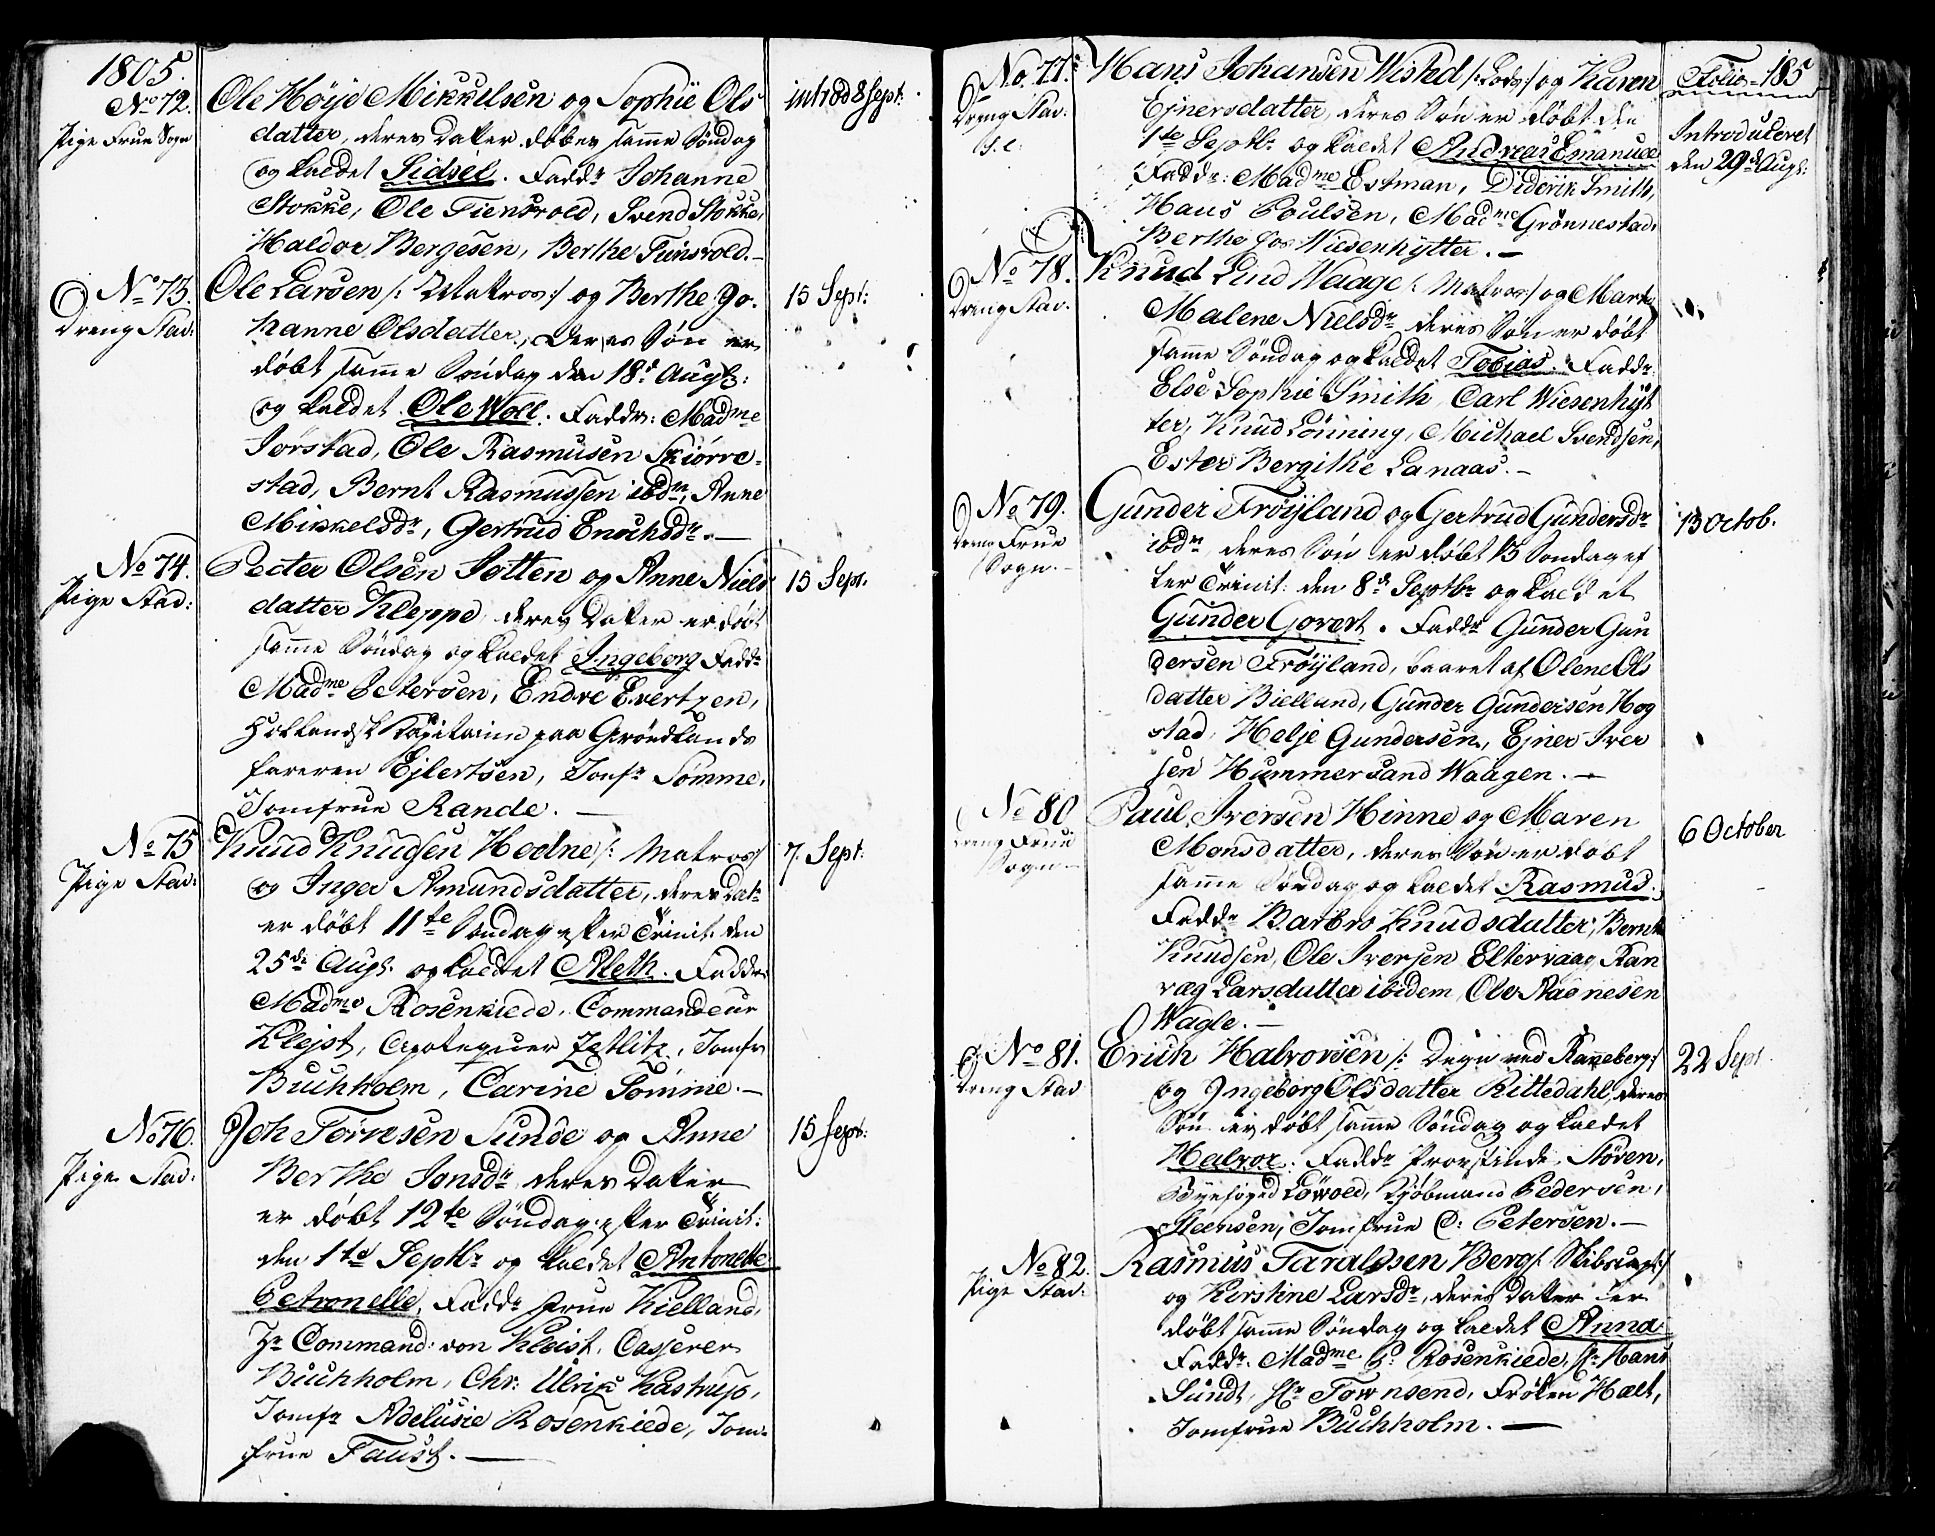 1805.
No 72.
Pige Frue Sogn
Ole Höije Mikkelsen og Sophie Ols
datter, deres Datter döbes samme Söndag
og kaldet Sidsel. Faddr Johanne
Stokke, Ole Tiensvold, Svend Stokke,
Haldor Bergesen, Berthe Tiensvold.
introd 8 Sept:
No 73.
Dreng Stav:
Ole Larsen /: Matros :/ og Berthe Jo-
hanne Olsdatter, Deres Sön er
döbt samme Söndag den 18de Augt:
og kaldet Ole Woll. Faddr: Madme
Jörstad, Ole Rasmusen Skiörre-
stad, Bernt Rasmussen ibdm, Anne
Mikkelsdr, Gertrud Enochsdr.
15 Sept:
No 74.
Pige Stad:
Peeter Olsen Jotten og Anne Niels
datter Kleppe, deres Datter er döbt
samme Söndag og kaldet Ingeborg Faddr
Madme Petersen, Endre Evertzen,
Hollandsk Kapitaine paa Grönlands
fareren Ejlertsen, Jomfr Sömme,
Jomfrue Rande.
15 Sept:
No 75
Pige Stav:
Knud Knudsen Hodne /: Matros /
og Inger Amundsdatter, deres Dat:
er döbt 11te Söndag efter Trinit: den
25de Augt. og kaldet Aleth. Faddr
Madme Rosenkiede, Commandeur
Klejst, Apotequer Zetlitz, Jomfr
Buchholm, Carine Sömme.
7. Sept:
No 76.
Pige Stad:
Joh Törresen Sunde og Anne
Berthe Jonsdr, deres Datter
er döbt 12te Söndag efter Trinit:
den 1te Septbr og kaldet Antonette
Petronelle, Faddr Frue Kielland,
Hr Command: von Kleist, Casserer
Buchholm, Chr: Ulrik Kastrup,
Jomfr Adelusie Rosenkiede, Jom-
frue Faust.
15 Sept:
Folio 185
No 77.
Dreng Stav.
Hans Johansen Wisted /: Lods :/ og Karen
Ejnersdatter, deres Sön er döbt den
1te Septbr og kaldet Andreas Emanuel
Faddr: Madme Estman, Diderik Smith,
Hans Poulsen, Madme Grönnestad,
Berthe Wiesenhytter.
Introduceret
den 29de Augt:
No 78.
Dreng Stav.
Knud Lind Waage /: Matros :/ og Marte
Malene Nielsdr deres Sön er döbt
samme Söndag og kaldet Tobias. Faddr:
Else Sophie Smith Carl Wiesenhyt
ter, Knud Lönning, Michael Svendsen,
Ester Bergithe Lanaas.
No 79.
Dreng Frue
Sogn.
Gunder Fröyland og Gertrud Gundersdr
ibdm, deres Sön er döbt 13 Sondag ef
ter Trinit: den 8de Septbr og kaldet
Gunder Govert. Faddr Gunder Gun
dersen Fröyland, baaret af Olene Ols
datter Bielland, Gunder Gundersen Hog
stad, Helje Gundersen, Ejner Iver
sen Hummersand Waagen.
13 Octob.
No 80
Dreng Frue
Sogn
Paul Iversen Hinne og Maren
Monsdatter, deres Sön er döbt
samme Söndag og kaldet Rasmus.
Faddr Barbro Knudsdatter, Bernt
Knudsen, Ole Iversen Eltervaag, Ran
væg Larsdatter ibidem, Ole Aadnesen
Wagle.
6 October
No 81.
Dreng Stad
Erich Halvorsen /: Degn ved Raneberg :/
og Ingeborg Olsdatter Kittedahl, deres
Sön er döbt samme Söndag og kaldet
Halvor. Faddr Provstinde Stören,
Byefoged Löwold, Kjöbmand Pedersen,
Steensen, Jomfrue C: Petersen.
22 Sept
No 82.
Pige Stad:
Rasmus Taraldsen Berg /: Skibscapt: /
og Kirstine Larsdr, deres Datter er
döbt samme Söndag og kaldet Anna
Faddr. Madme P: Rosenkiede, Hr Hans
Sundt, Hr Townsend, Fröken Halt,
Jomfrue Buchholm.